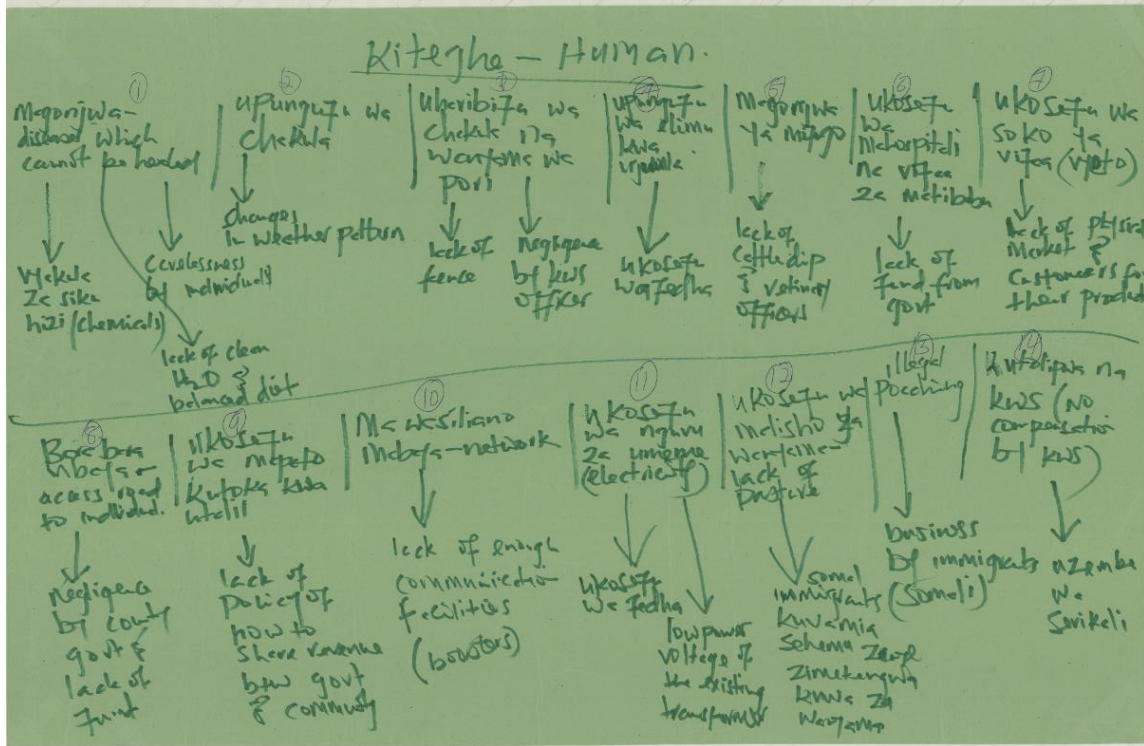 Kiteghe - Human.
①
Magonjwa-
disease which
cannot be healed
vyakula
za siku
hizi (chemicals)
carelessness
by individuals
lack of clean
H2O &
balanced diet
②
upungufu wa
chakula
changes
in weather pattern
③
Uharibifu wa
chakula na
wanyama wa
pori
lack of
fence
negligence
by kws
officer
④
upungufu
wa elimu
kwa
lack of
ukosefu
wa fedha
⑤
Magonjwa
ya mifugo
lack of
cattle dip
& vetinary
officers
⑥
ukosefu
wa
mahospitali
na vifaa
za matibabu
lack of
fund from
govt
⑦
ukosefu wa
soko ya
vifaa (vyeto)
lack of physical
market &
customers for
their product
⑧
Barabara
mbaya-
access road
to individual.
negligence
by county
govt &
lack of
⑨
ukosefu
wa mapato
kutoka kwa
utalii
lack of
policy of
how to
share revenue
btw govt
& community
⑩
Mawasiliano
mabaya-network
lack of enough
communication
facilities
(boosters)
⑪
ukosefu
wa nguvu
za umeme
(electricity)
ukosefu
wa fedha
low power
voltage of
the existing
transformer
⑫
ukosefu wa
malisho ya
wanyama-
lack of
pasture
somal
immigrants
kuvamia
sehemu
zimetengwa
kuwa za
wanyama
⑬
illegal
poaching
business
by immigrats
(somali)
⑭
kutolipwa na
kws (no
compensation
by kws)
uzembe
wa
serikali